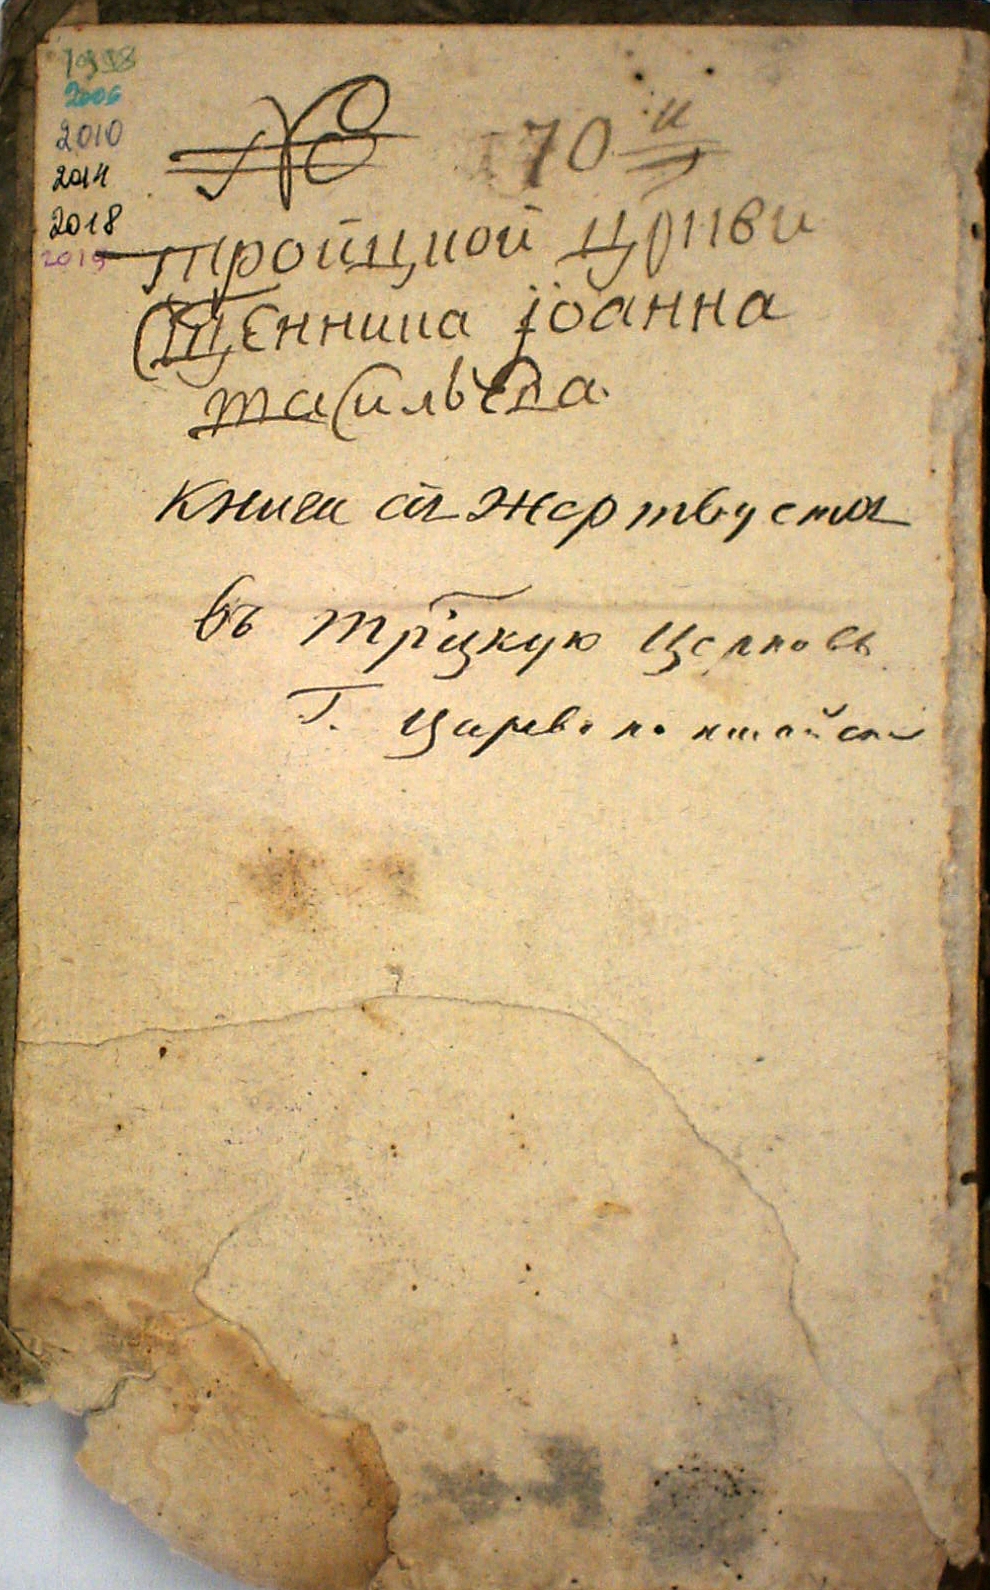 1998
2006
2010
2014
2018
2019
№ 70 й
Троицкой црнви
Сщенника Іоанна
Васильева
книга сия жертвуется
въ Трицкую Церковь
Г. Царевококшайск